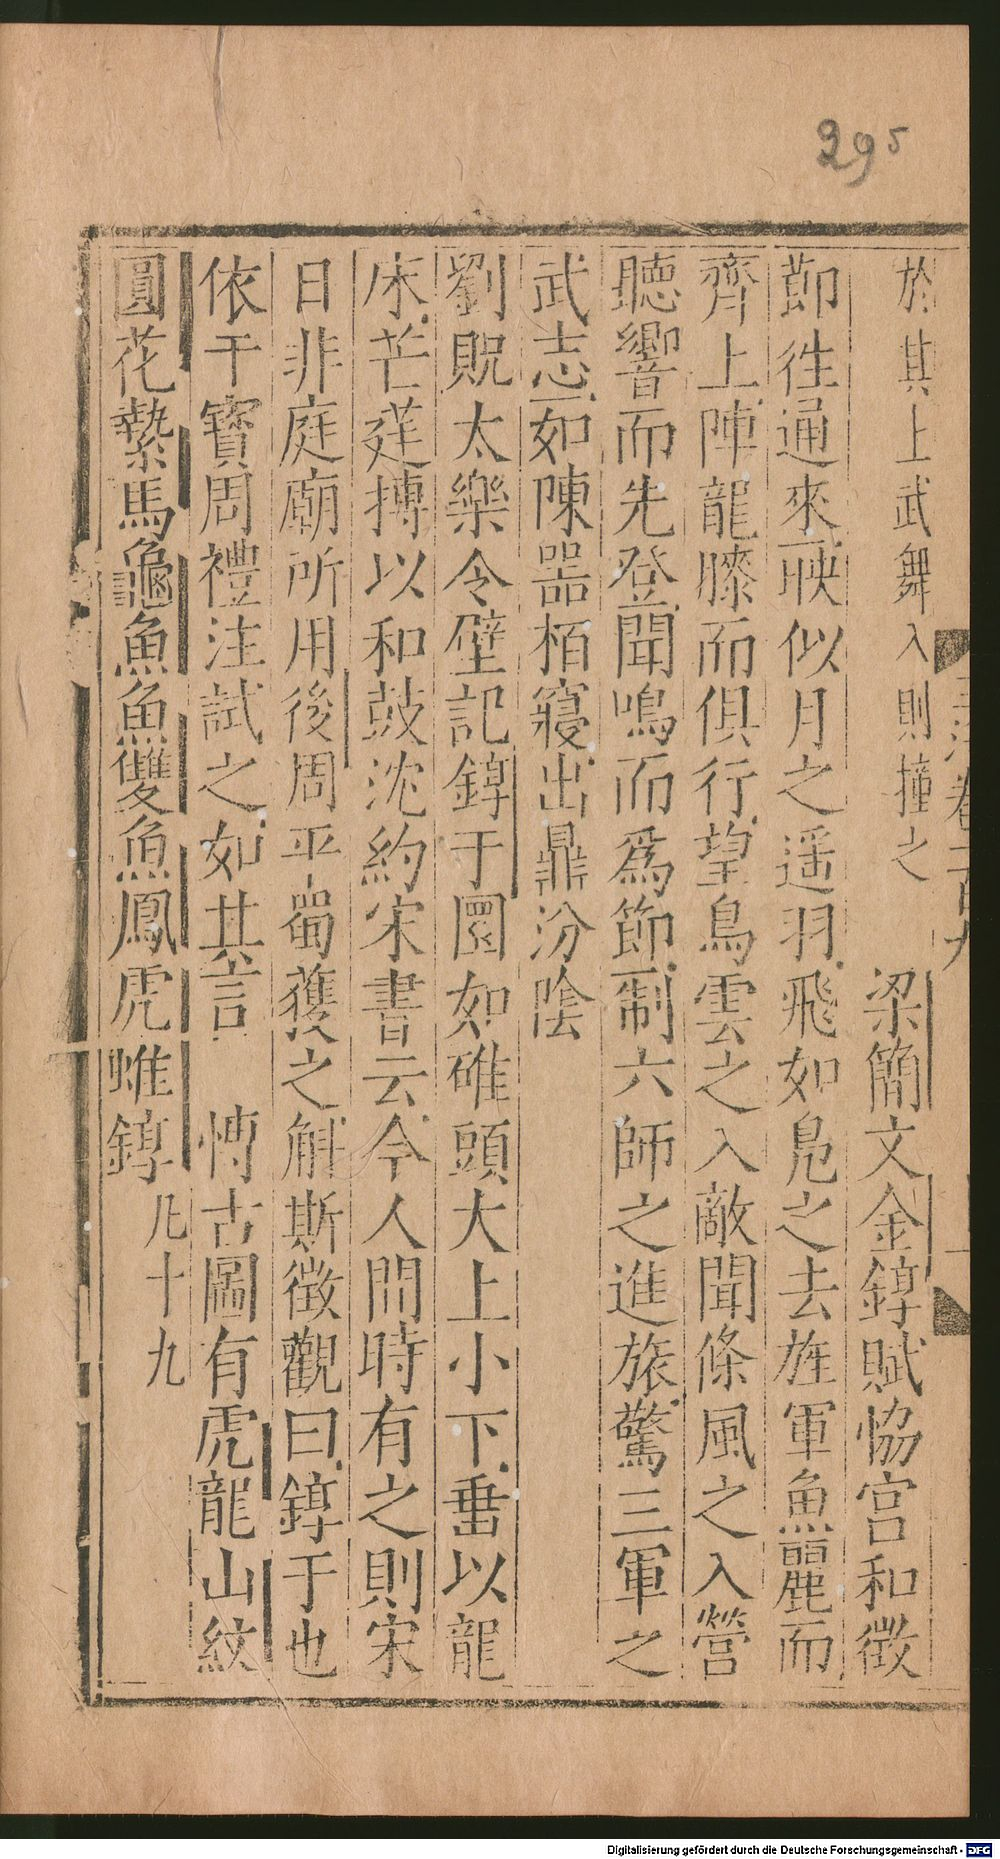 295
於其上武舞入則撞之 梁簡文金錞賦恊宫和徵
節徃通來映似月之遥羽飛如鳧之去旌軍魚麗而
齊上陣龍膝而俱行望鳥雲之入敵聞條風之入營
聽響而先登聞鳴而爲節制六師之進旅驚三軍之
武志如陳噐栢寢出鼎汾陰
劉貺太樂令壁記錞于圜如碓頭大上小下垂以龍
床芒莛搏以和鼓沈約宋書云今人間時有之則宋
日非庭廟所用後周平蜀獲之斛斯徴觀曰錞于也
依干寶周禮注試之如其言 愽古圖有虎龍山紋
圓花縶馬龜魚魚雙魚鳳虎蜼錞凡十九
Digitalisierung gefördert durch die Deutsche Forschungsgemeinschaft - DFG